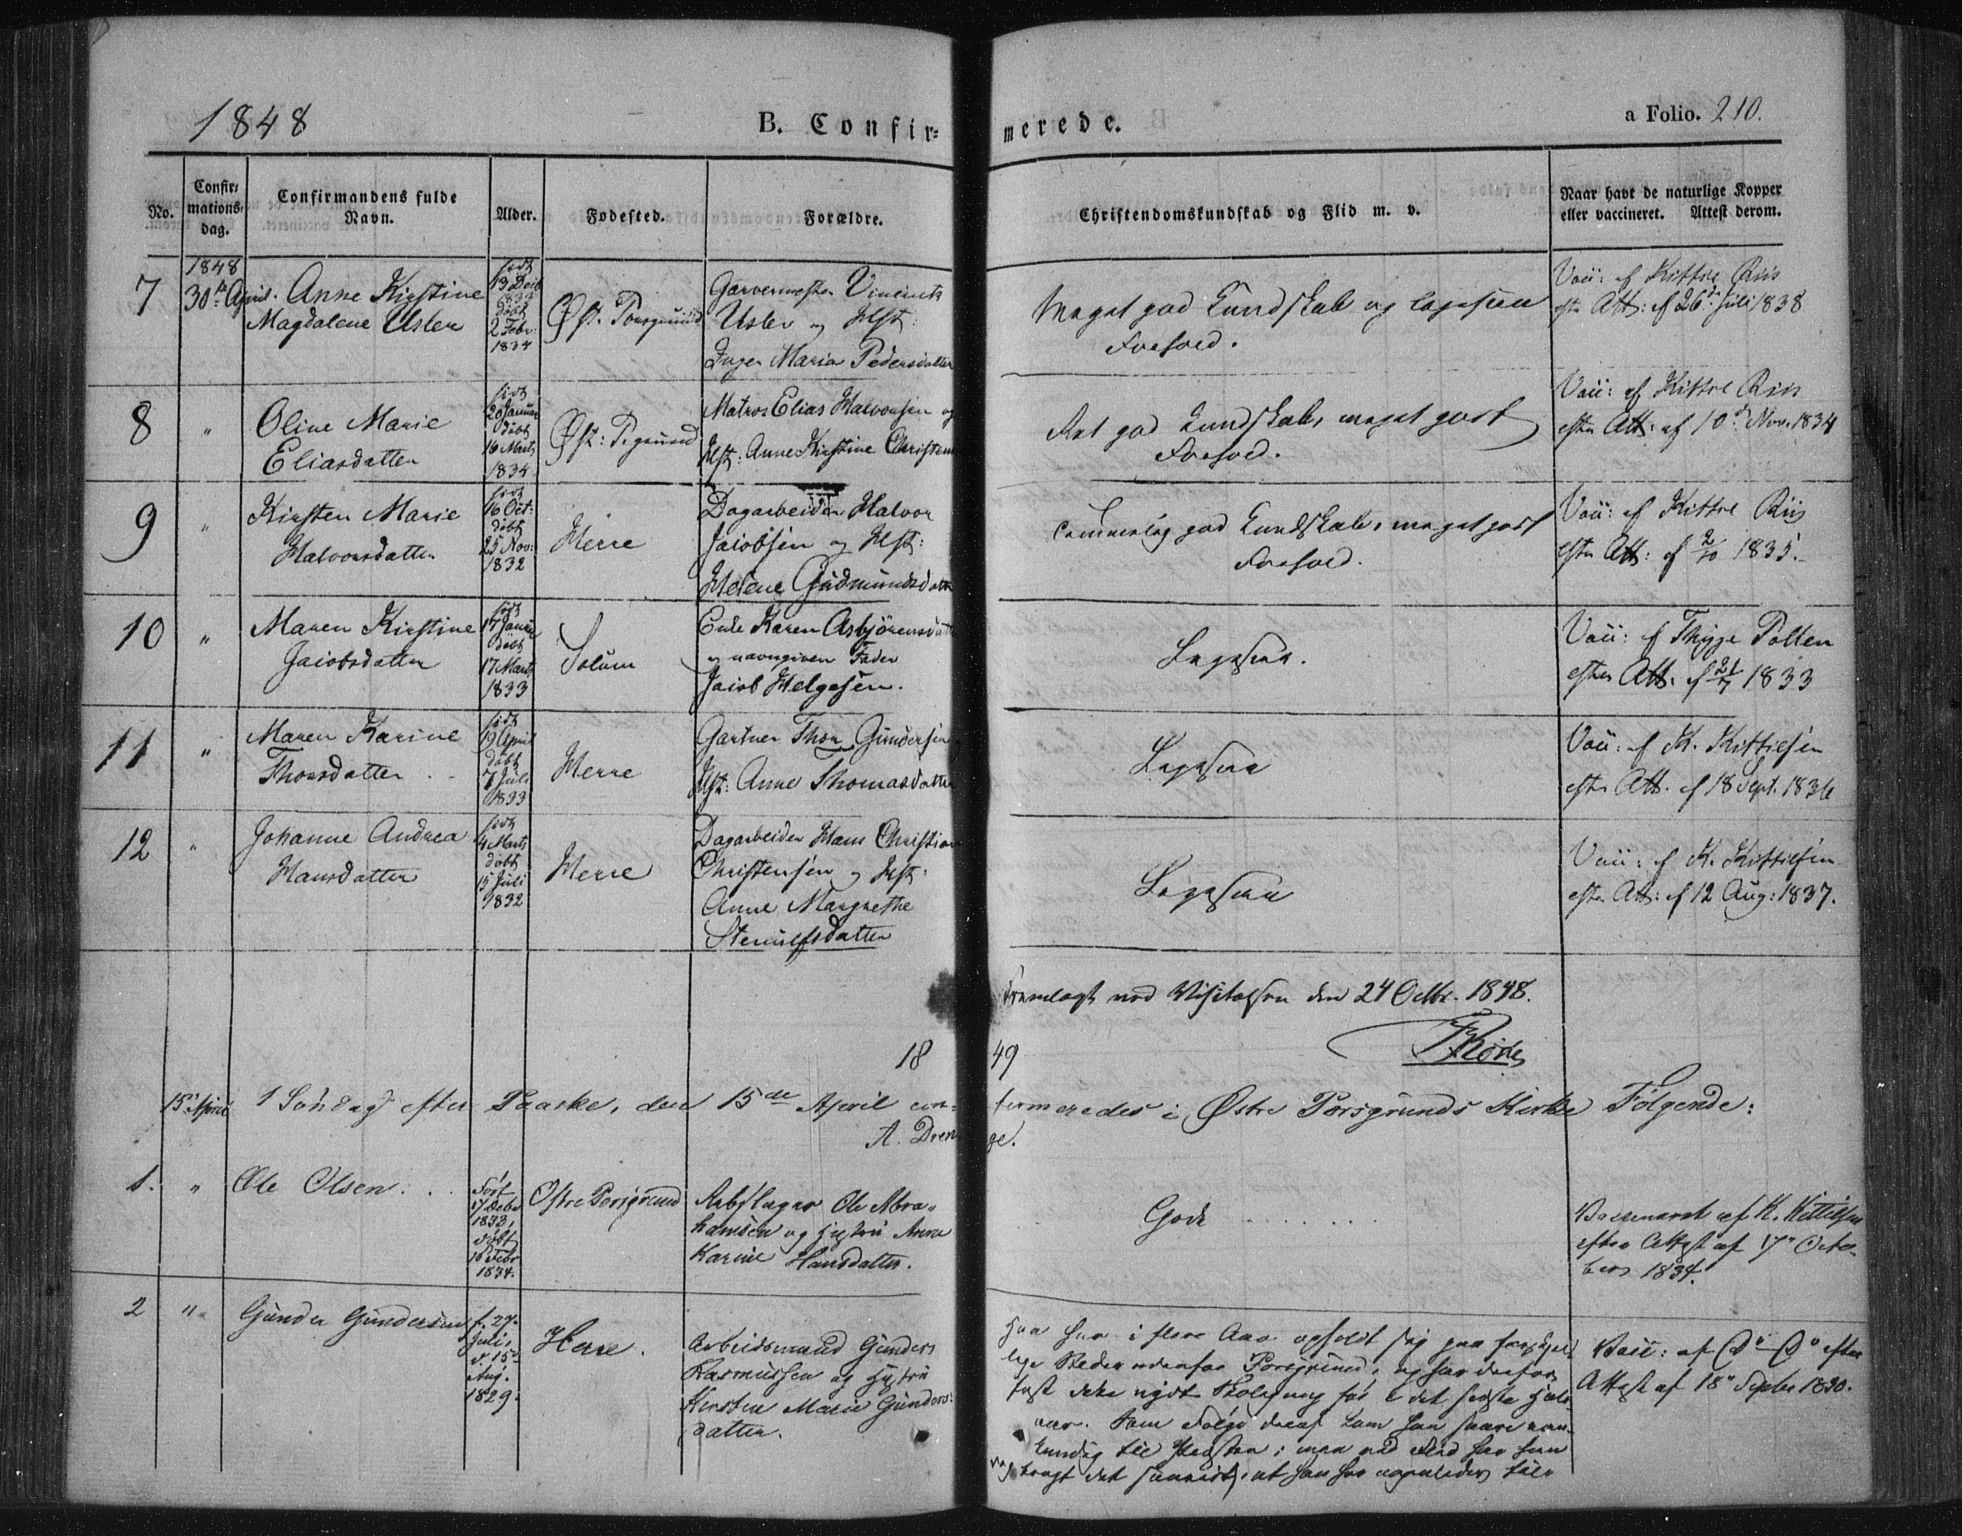 1848
B. Confir-
merede.
a Folio. 210.
No.
Confir-
mations-
dag.
Confirmandens fulde
Navn.
Alder.
Fødested.
Forældre.
Christendomskundskab og Flid m. v.
Naar havt de naturlige Kopper
eller vaccineret. Attest derom.
7
1848
30te April.
Anne Kirstine
Magdalene Usler
født
13 Decb
1833
døbt
2 Febr:
1834
Øst: Porsgrund
Garvermester Vincents
Usler og Hst:
Inger Maria Pedersdatter
Meget god Kundskab og
Forhold.
Vacc: af Kittel Riis
efter Att: af 26de Juli 1838
8
"
Oline Marie
Eliasdatter
født
20 Januar
døbt
16 Marts
1834
Øst: P.grund
Matros Elias Halvorsen og
Hst: Anne Kirstine Christens
god Kundskab, meget godt
Forhold.
Vacc: af Kittel Riis
efter Att: af 10de Nov. 1834
9
"
Kirsten Marie
Halvorsdatter
født
16 Oct:
døbt
25 Nov:
1832
Herre
Dagarbeider Halvor
Jacobsen og Hst:
Helene Gudmundsdatter
temmelig god Kundskab, meget godt
Forhold.
Vacc: af Kittel Riis
efter Att: af 2/10 1835.
10
"
Maren Kirstine
Jacobsdatter
født
17 Januar
døbt
17 Marts
1833
Solum
Enke Karen Asbjörnsdatt
og navngiven Fader
Jacob Helgesen.
Ligesaa.
Vacc: af Thyge Polten
efter Att. af 21/7 1833
11
"
Maren Karine
Thorsdatter
født
19 April
døbt
7 Juli
1833
Herre
Gartner Thor Gundersen
Hst: Anne Thomasdatter
Ligesaa
Vacc: af K. Kittilsen
efter Att. af 18 Sept. 1836
12
"
Johanne Andrea
Hansdatter
født
4 Marts
døbt
15 Juli
1832
Herre
Dagarbeider Hans Christian
Christensen og Hst:
Anne Margrethe
Stenulfsdatter
Ligesaa
Vacc: af K. Kittilsen
efter Att: af 12 Aug: 1837.
Fremlagt ved Visitatsen den 24 Octbr. 1848.
18 49
15 April
1 Søndag efter Paaske, den 15de April con- firmeredes i Østre Porsgrunds Kirke Følgende:
A. Dren ge.
1.
"
Ole Olsen
Født
17 Decbr
1833,
døbt
16 Febr
1834.
Østre Porsgrund
Ole Abra-
hamsen og Hustru Anne
Karine Hansdatter.
Godt
Vaccineret af K. Kittilsen
efter Attest af 17de Octo-
ber 1834.
2
"
Gunder Gundersen
f. 27
Juli,
d. 15
Aug.
1829.
Herre.
Arbeidsmand Gunder
Rasmussen og Hustru
Kirsten Marie Gunders-
datter.
har i flere Aar opholdt sig paa forskjel-
lige Steder udenfor Porsgrund, og har derfor
ikke nydt før i det sidste
som Følge deraf kom han
kundig til
bragt det
Vacc: af Do Do efter
Attest af 18de Septbr 1830.